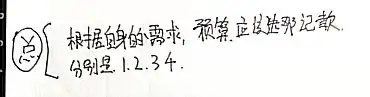 总 根据自身的需求，预算应该是那记款
分别是1.2.3.4.